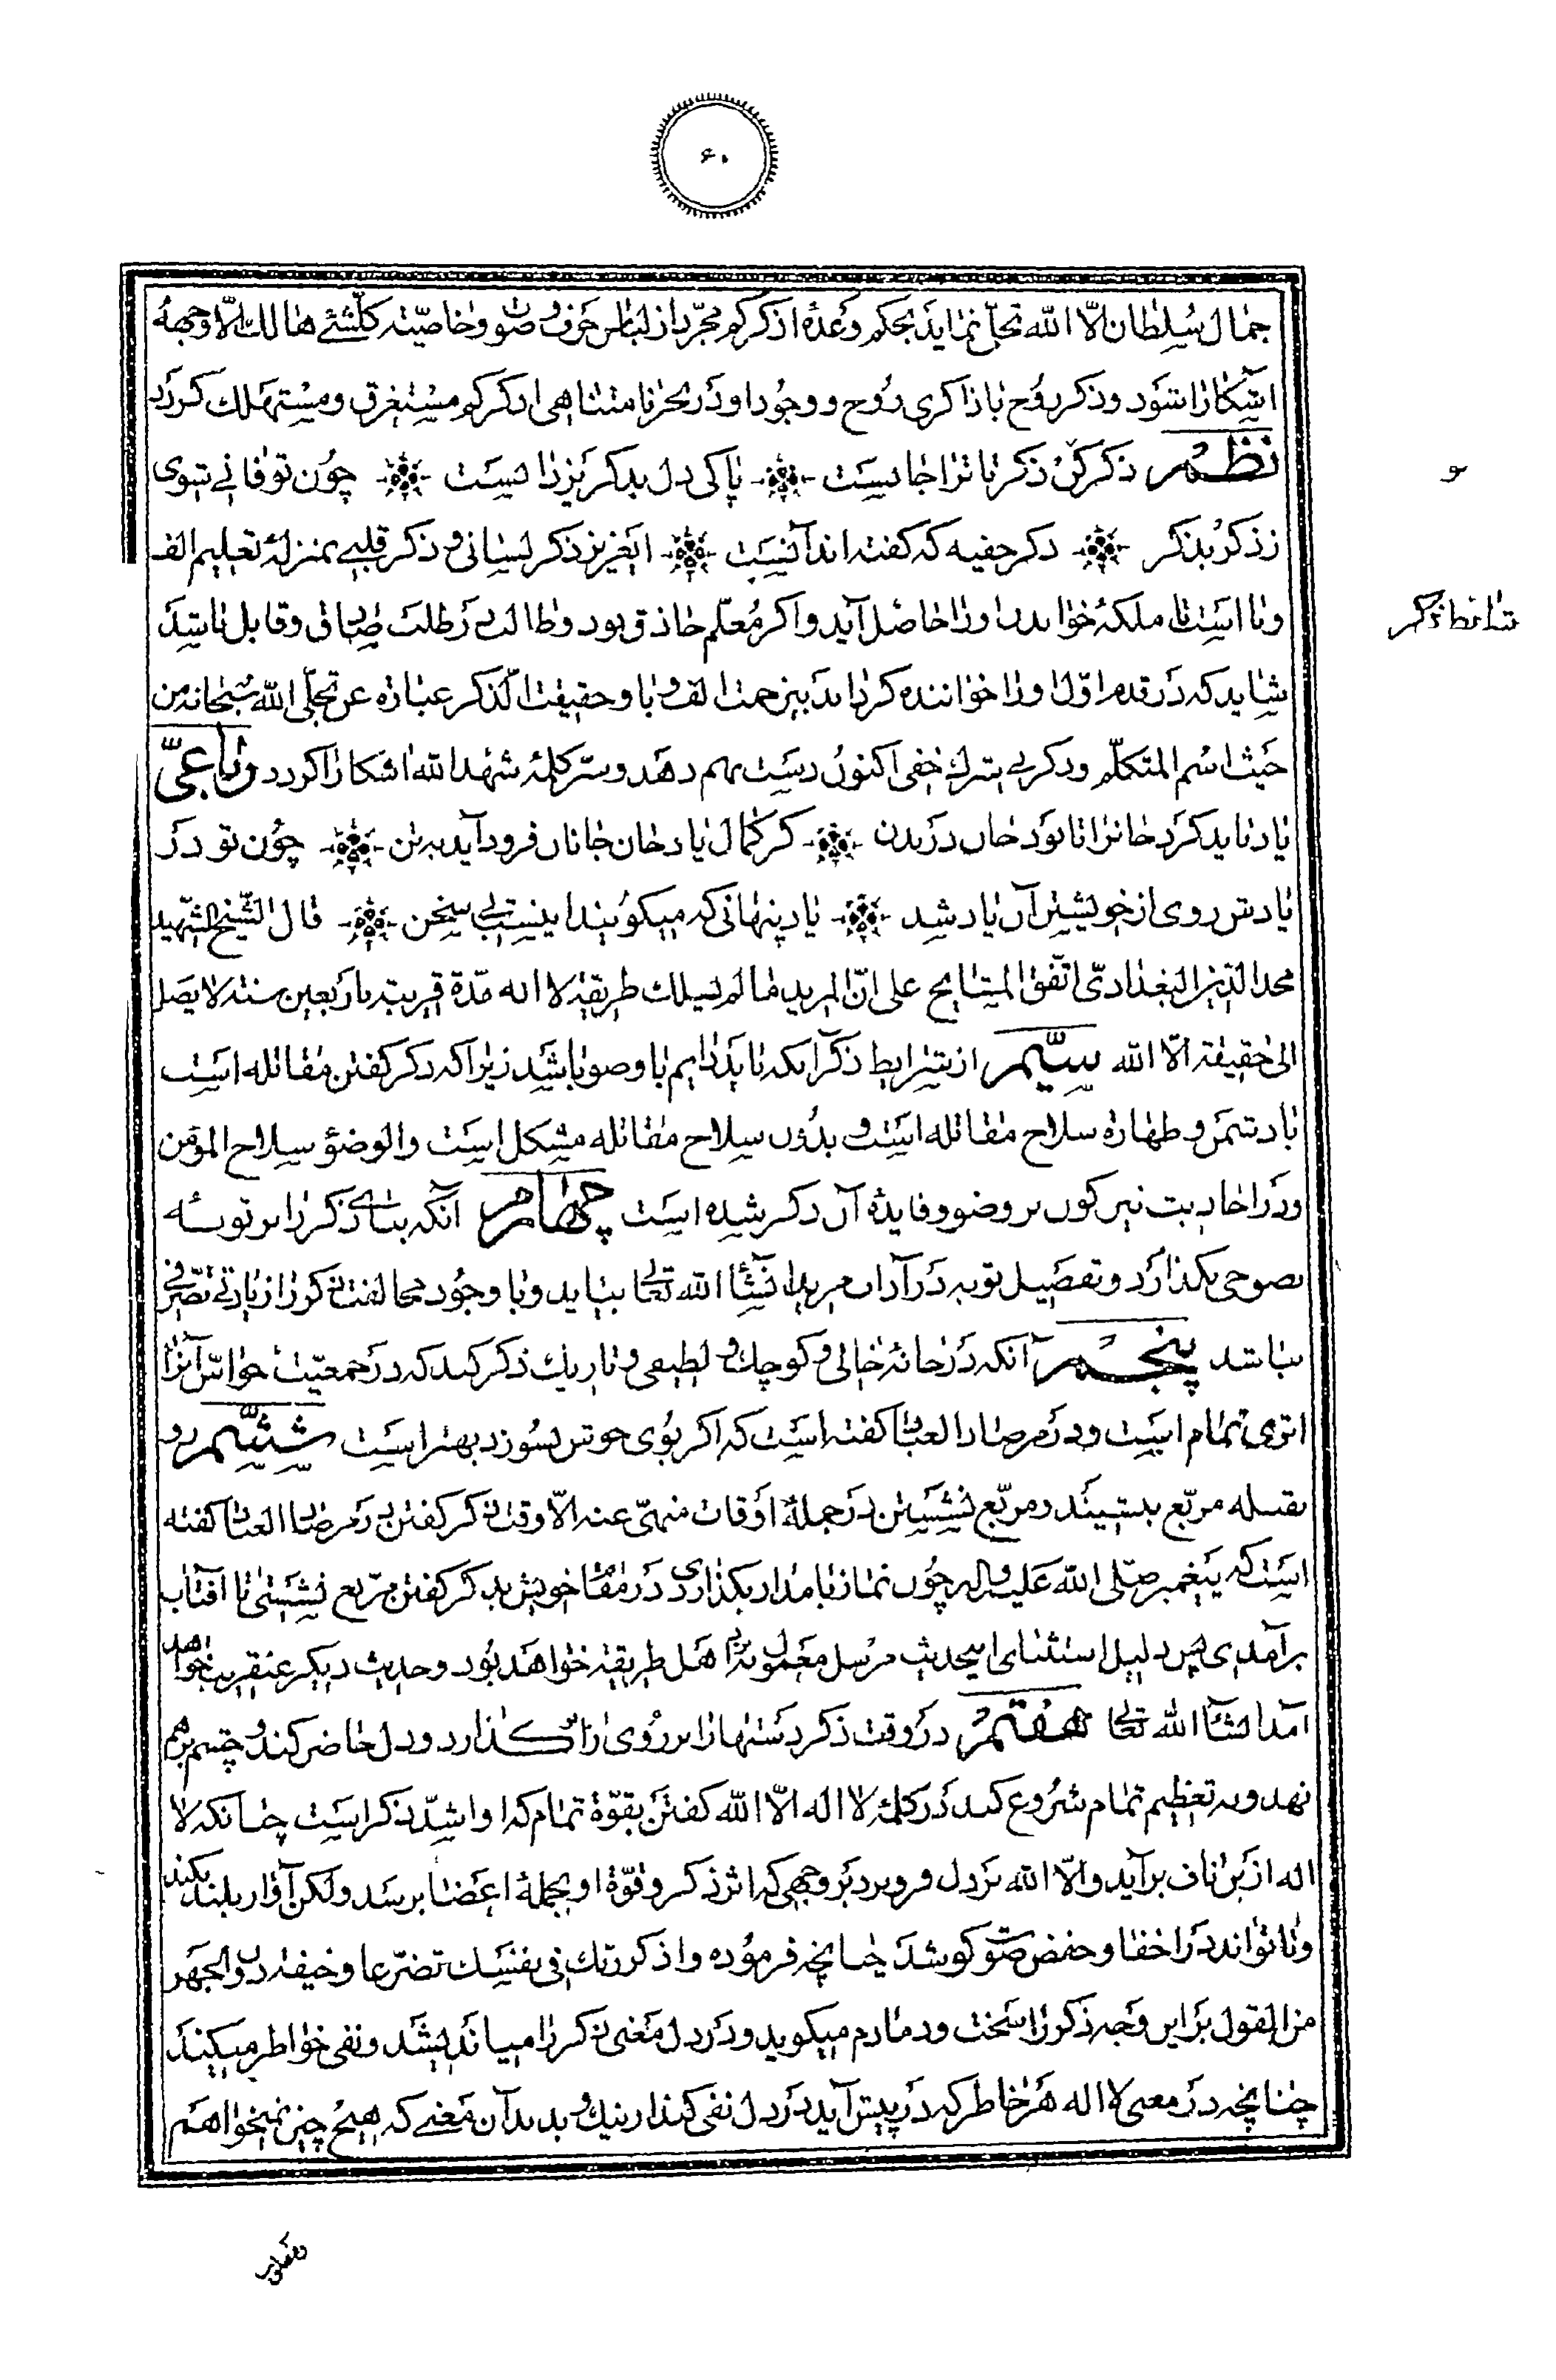 ۶۰
جمال سلطان الّا الله تجلّی نماید بحکم وعدهٔ اذکرکم مجرّد از لباس حرف و صوت و خاصیّته کلّ شئ هالك الّا وجهه
آشکارا شود و ذکر روح با ذاکری روح و وجود او در بحر نا متناهی اذکرکم مستغرق و مستهلك کردد
نظم ذکر کن ذکر تا ترا جانست پاکی دل بذکر یزدانست چون تو فانی شوی
ز ذکر بذکر ذکر خفیه که کفته‌اند آنست ایعزیز ذکر لسانی و ذکر قلبی بمنزلهٔ تعلیم الف
و با است تا ملکهٔ خواندن او را حاصل آید و اکر معلّم حاذق بود و طالب در طلب صادق و قابل باشد
شاید که در قدم اوّل او را خواننده کرداند بیزحمت الف و با و حقیقت الذکر عبارة عن تجلّی الله سبحانه من
حیث اسم المتکلّم و ذکر بی شرك خفی اکنون دست بهم دهد و سرّ کلمهٔ شهد الله اشکارا کردد رباعیّ
یاد باید کرد جانرا تا بود جان در بدن کز کمال یاد جان جانان فرود آید به تن چون تو در
یادش روی از خویشتن آن یاد شد یاد پنهانی که میکویند اینست بی سخن قال الشّیخ الشّهید
مجد الدّین البغدادیّ اتّفق المشایخ علی انّ المرید ما لم یسلك طریقة لا اله مدّة قریبة باربعین سنة لا یصل
الی حقیقة الّا الله سیّم از شرایط ذکر آنکه باید دایم با وضو باشد زیرا که ذکر کفتن مقاتله است
با دشمن و طهارة سلاح مقاتله است و بدون سلاح مقاتله مشکل است و الوضؤ سلاح المؤمن
و در احادیث نیز کون بر وضو و فایدهٔ آن ذکر شده است چهارم آنکه بنای ذکر را بر توبهٔ
نصوحی بکذارد و تفصیل توبه در آداب مرید انشآء الله تعالی بیاید و با وجود مخالفت ذکر را زیادتی تصرّفی
نباشد پنجم آنکه در خانهٔ خالی و کوچك و لطیف و تاریك ذکر کند که در جمعیّت حواسّ آنرا
اثری تمام است و در مرصاد العباد کفته است که اکر بوی خوش بسوزد بهتر است ششّم رو
بقبله مربّع بنشیند و مربّع نشستن در جملهٔ اوقات منهیّ عنه الّا وقت ذکر کفتن در مرصاد العباد کفته
است که پیغمبر صلّی الله علیه و اله چون نماز بامداد بکذاردی در مقام خویش بذکر کفتن مربّع نشستی تا آفتاب
برآمدی پس دلیل استثنای اینحدیث مرسل معمول به نزد اهل طریقة خواهد بود و حدیث دیکر عنقریب خواهد
آمد انشآء الله تعالی هفتم در وقت ذکر دستها را بر روی ران کذارد و دل حاضر کند و چشم برهم
نهد و به تعظیم تمام شروع کند در کلمهٔ لا اله الّا الله کفتن بقوّة تمام که او اشدّ ذکرا است چنانکه لا
اله از بن ناف برآید و الّا الله بر دل فرو برد بر وجهی که اثر ذکر و قوّة او بجملهٔ اعضا برسد ولکن آواز بلند نکند
و تا تواند در اخفا و خفض صوت کوشد چنانچه فرموده و اذکر ربّك فی نفسك تضرّعا و خیفة دون الجهر
من القول بر این وجه ذکر را سخت و دمادم میکوید و در دل معنی ذکر را میاندیشد و نفی خواطر میکند
چنانچه در معنی لا اله هر خاطر که در پیش آید در دل نفی کند از نیك و بد بدان معنی که هیچ چیز نمیخواهم
شرائط ذکر